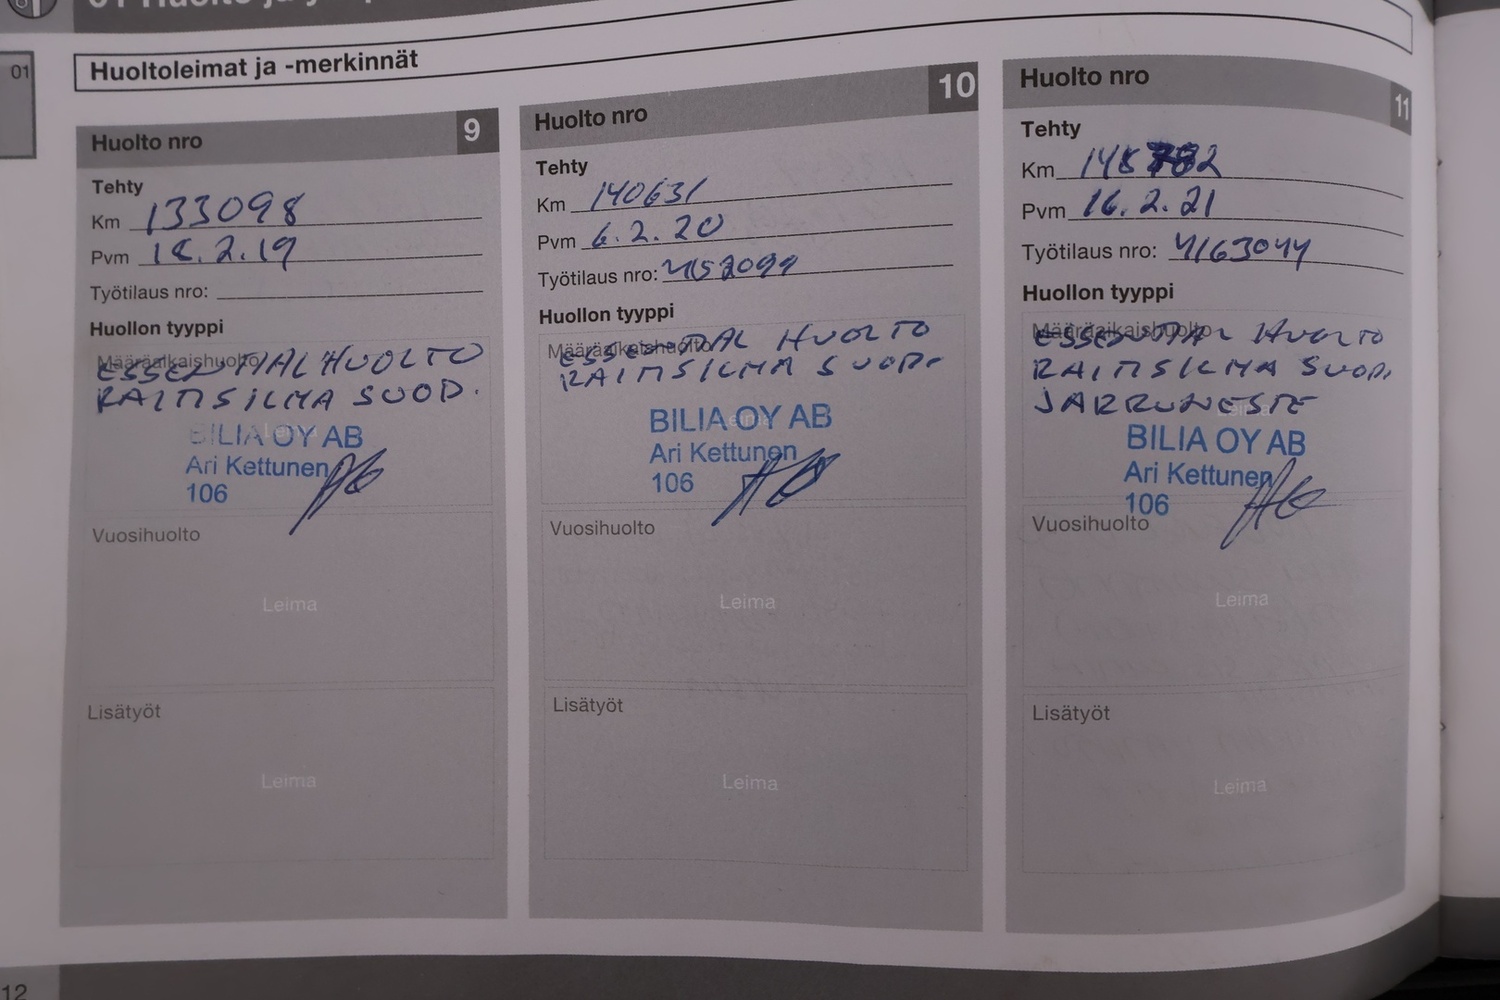 01
Huoltoleimat ja -merkinnät
Huolto nro 9
Tehty
Km 133098
Pvm 18.2.19
Työtilaus nro:
Huollon tyyppi
Määräaikaishuolto
ESSENTIAL HUOLTO
RAITISILMA SUOD.
Leima
BILIA OY AB
Ari Kettunen
106
Vuosihuolto
Leima
Lisätyöt
Leima
Huolto nro 10
Tehty
Km 140631
Pvm 6.2.20
Työtilaus nro:
Huollon tyyppi
Määräaikaishuolto
ESSENTIAL HUOLTO
RAITISILMA SUOD.
Leima
BILIA OY AB
Ari Kettunen
106
Vuosihuolto
Leima
Lisätyöt
Leima
Huolto nro 11
Tehty
Km
Pvm 16.2.21
Työtilaus nro: 4163044
Huollon tyyppi
Määräaikaishuolto
ESSENTIAL HUOLTO
RAITISILMA SUOD.
JARRUNESTE
Leima
BILIA OY AB
Ari Kettunen
106
Vuosihuolto
Leima
Lisätyöt
Leima
12